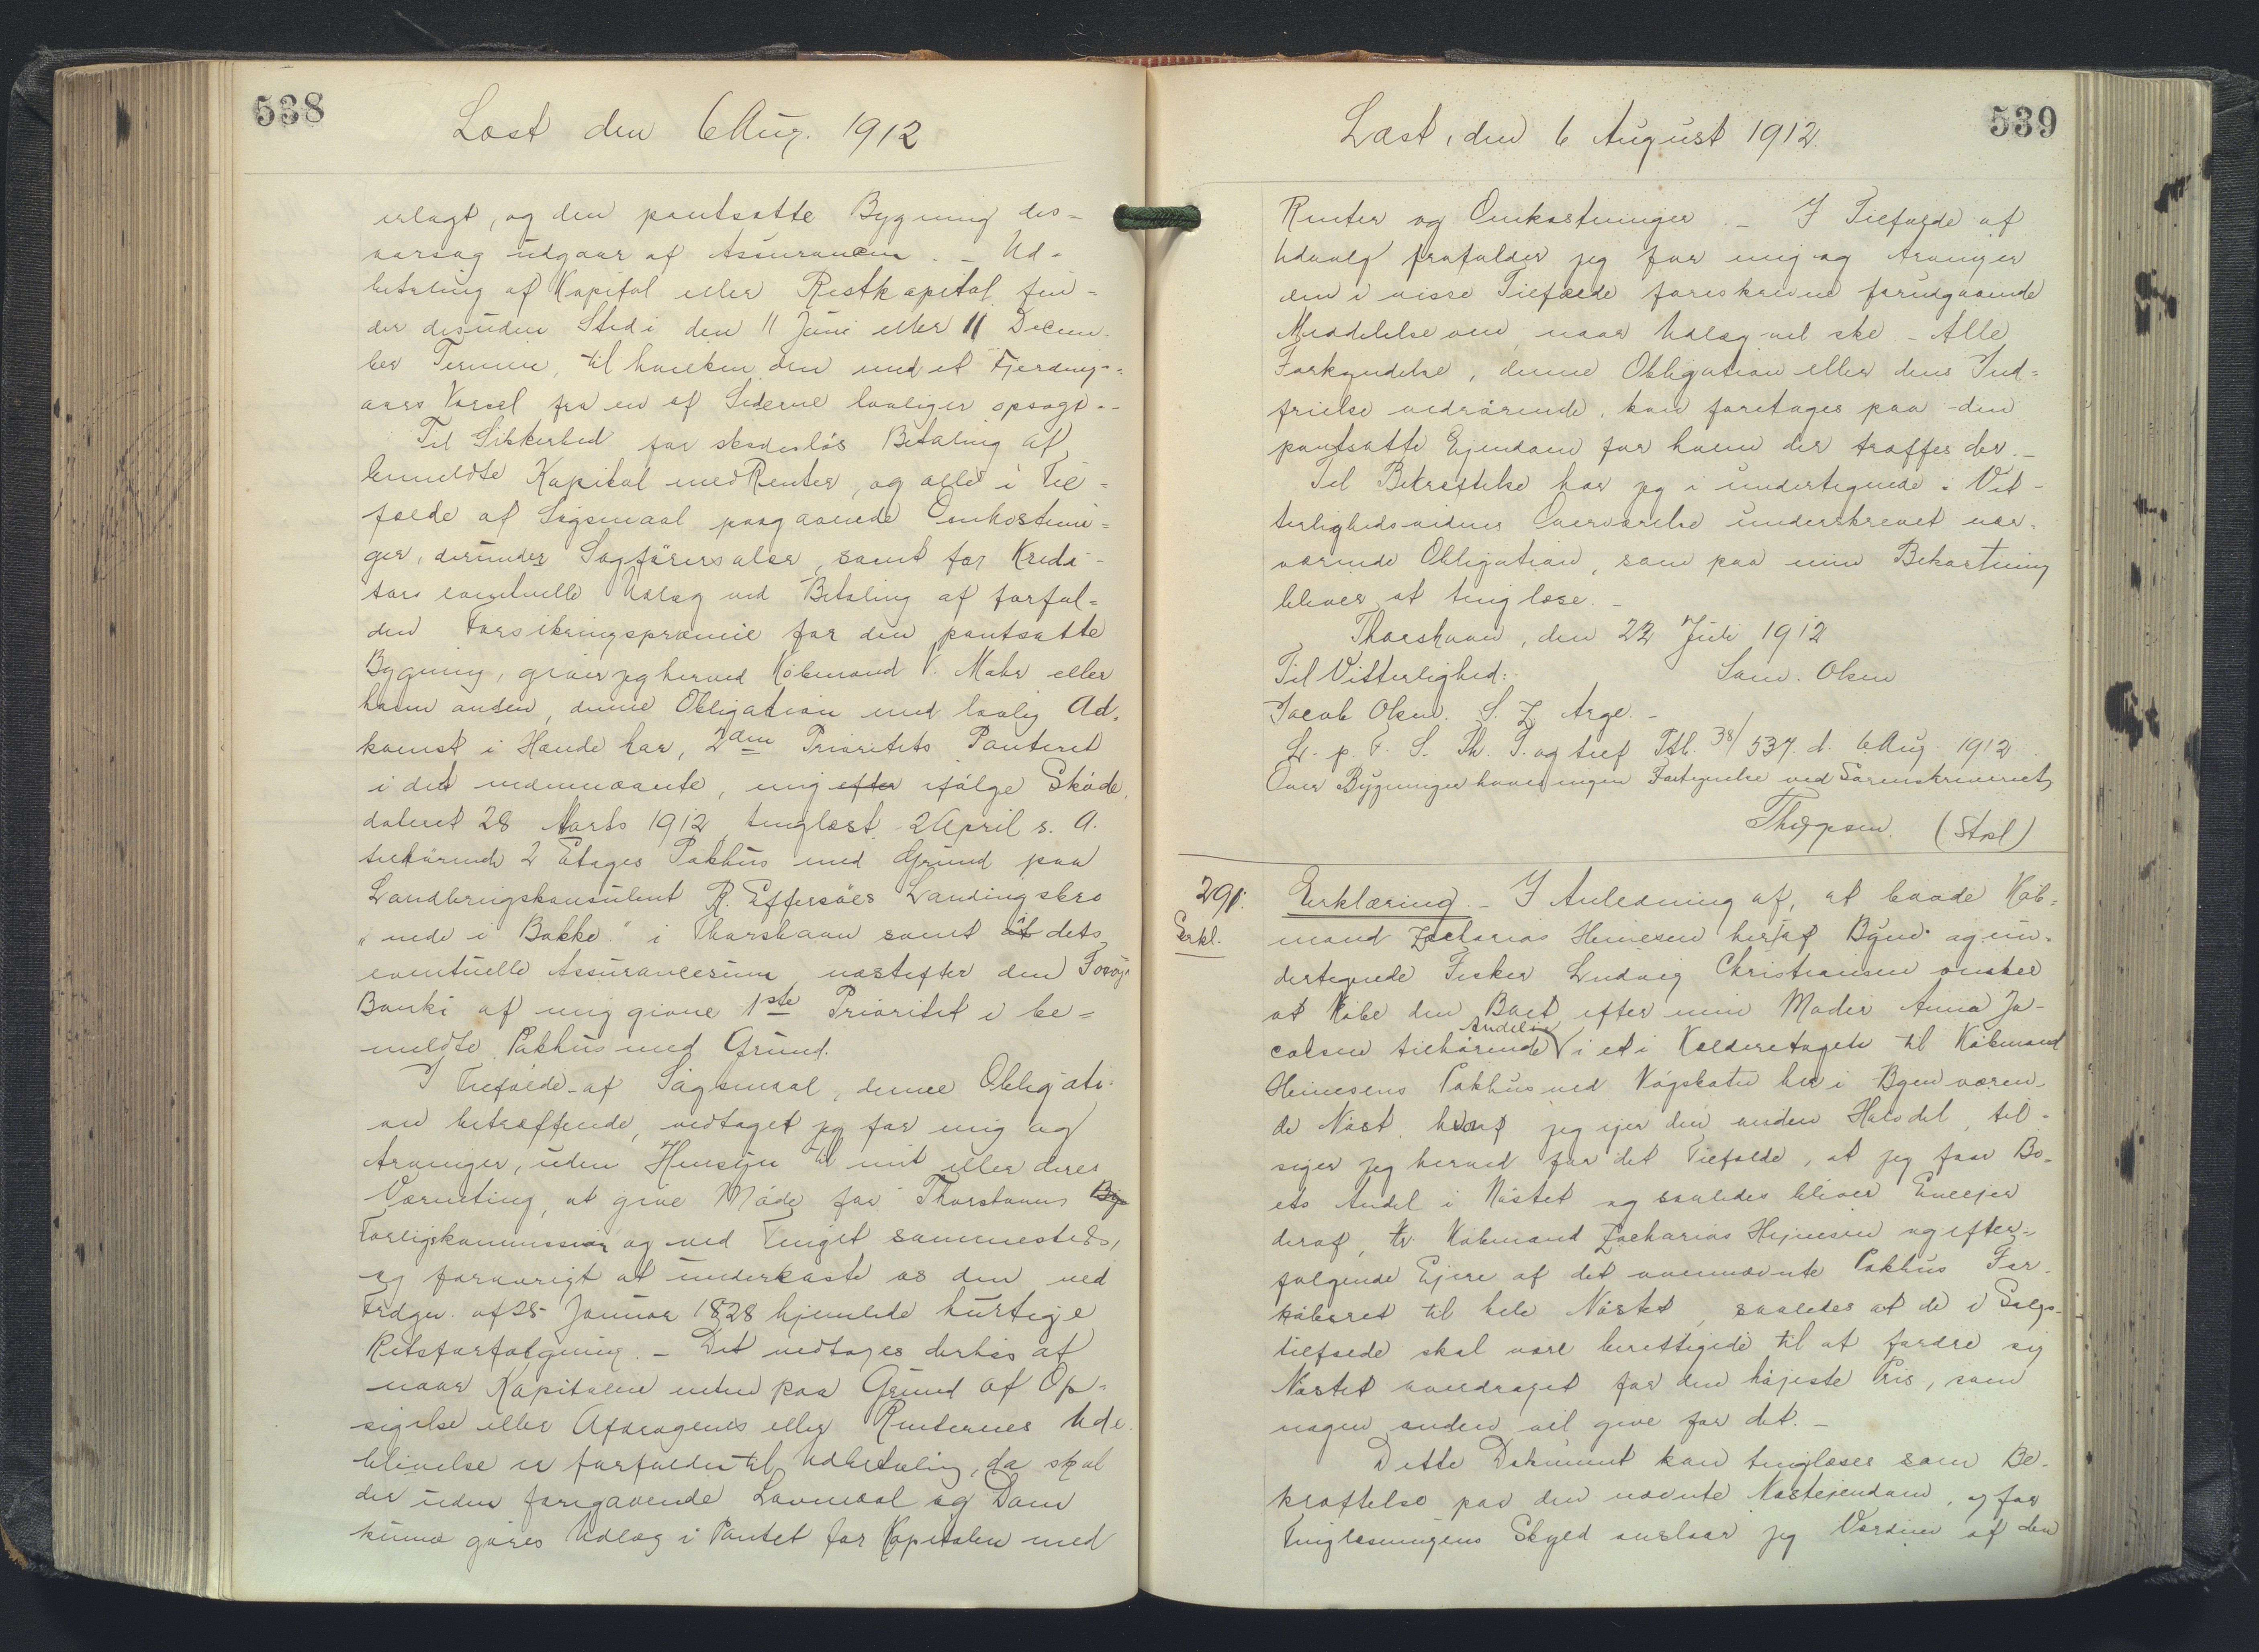 538
Læst den 6 Aug. 1912
erlagt, og den pantsatte Bygning des-
aarsag udgaar af Assurancen. – Ud-
betaling af Kapital eller Restkapital fin-
der desuden Sted i den 11 Juni eller 11 Decem-
ber Termin, til hvilken den med et Fjerding-
aars Varsel fra en af Siderne lovligen opsagt. -
Til Sikkerhed for skadesløs Betaling af
bemeldte Kapital med Renter, og alle i Til-
fælde af Søgsmaal paagaaende Omkostnin-
ger, derunder Sagførersalær, samt for Kredi-
tors eventuelle Udlæg ved Betaling af forfal-
den Forsikringspræmie for den pantsatte
Bygning, giver jeg herved Købmand V. Mohr eller
hvem anden, denne Obligation med lovlig Ad-
komst i Hænde har, 2den Prioritets Panteret
i det nedennævnte, mig efter ifølge Skøde,
dateret 28 Marts 1912, tinglæst 2 April s. A.
tilhørende 2 Etages Pakhus med Grund paa
Landbrugskonsulent R. Effersøes Landingsbro
"nede i Bakke" i Thorshavn samt i dets
eventuelle Assurancesum næstefter den Forøy
Banki af mig givne 1ste Prioritet i be-
meldte Pakhus med Grund.
I Tilfælde af Søgsmaal, denne Obligati-
on betræffende, vedtaget jeg for mig og
Arvinger, uden Hensyn til mit eller deres
Værneting, at give Møde for Thorshavns By
Forligskommission og ved Tinget sammesteds,
og forøvrigt at underkaste os den ved
Frdgn. af 25 Januar 1828 hjemlede hurtige
Retsforfølgning. – Det vedtages derhos at
naar Kapitalen enten paa Grund af Op-
sigelse eller Afdragenes eller Renternes Ude-
blivelse er forfalden til Udbetaling, da skal
der uden foregaaende Lovmaal og Dom
kunne gøres Udlæg i Pantet for Kapitalen med
539
Læst, den 6 August 1912.
Renter og Omkostninger. – I Tilfælde af
Udvalg frafalder jeg for mig og Arvinger
den i visse Tilfælde foreskrevne forudgaaende
Meddelelse om, naar Udlæg vil ske. – Alle
Forkyndelse, denne Obligation eller dens Ind-
frielse vedrørende, kan foretages paa den
pantsatte Ejendom for hvem der træffes der. –
Til Bekræftelse har jeg i undertegnede i Vit-
terlighedsvidners Overværelse underskrevet nær-
værende Obligation, som paa min Bekostning
bliver at tinglæse. –
Thorshavn, den 22 Juli 1912
Til Vitterlighed: Sam. Olsen
Jacob Olsen. S. Z. Arge. –
L. p. F. S. Th. T. og tilf Ptb. 38/537. d. 6 Aug. 1912.
Over Bygninger haves ingen Fortegnelse ved Sorenskriveriet,
(Stpl)
291.
Erkl.
Erklæring. – I Anledning af, at baade Køb-
mand Zacharias Heinesen her af Byen og un-
dertegnede Fisker Ludvig Christiansen ønsker
at købe den Boet efter min Moder Anna Ja-
cobsen tilhørende Andel i et i Kælderetagen til Købmand
Heinesens Pakhus ved Vágsbotn her i Byen væren-
de Nøst, hvoraf jeg ejer den anden Halvdel, til-
siger jeg herved for det Tilfælde, at jeg faar Bo-
ets Andel i Nøstet og saaledes bliver Eneejer
deraf, Hr. Købmand Zacharias Hejnesen og efter-
følgende Ejere af det ovennævnte Pakhus For-
købsret til hele Nøstet, saaledes at de i Salgs-
tilfælde skal være berettigede til at fordre sig
Nøstet overdraget for den højeste Pris, som
nogen anden vil give for det. –
Dette Dokument kan tinglæses som Be-
kræftelse paa den nævnte Nøstejendom, og for
Tinglæsningens Skyld anslaar jeg Værdien af den